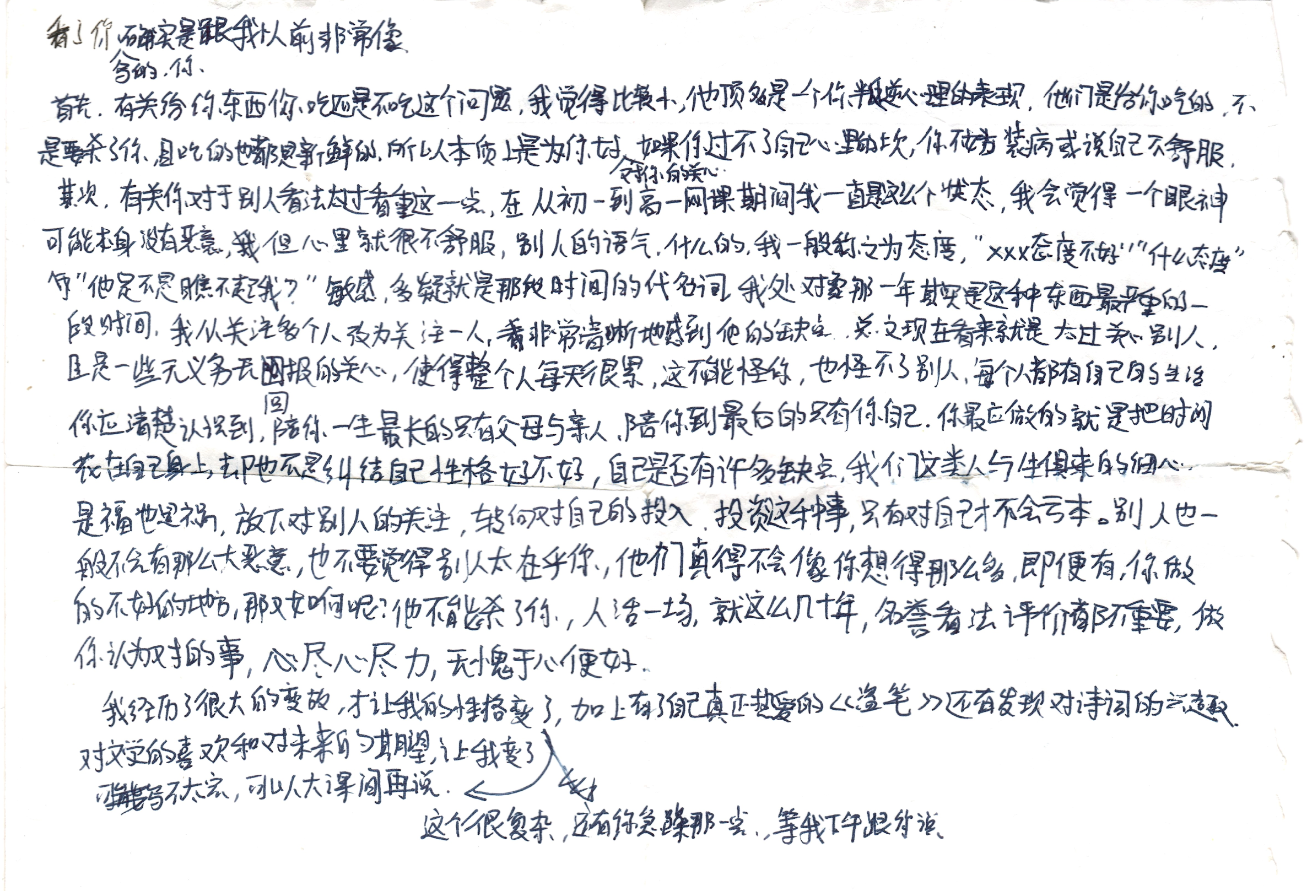 看了你写的,你确实是跟我以前非常像.
首先,有关给你东西你吃还是不吃这个问题,我觉得比较小,他顶多是一个你叛逆心理的表现,他们是给你吃的,不
是要杀了你,且吃的也都是新鲜的,所以本质上是为你好,如果你过不了自己心里的坎,你不妨装病或说自己不舒服.
其次,有关你对于别人看法太过看重这一点,在从初一到高一网课期间我一直是这么个状态,我会觉得一个眼神
可能本身没有恶意,我但心里就很不舒服,别人的语气,什么的,我一般称之为态度,"xxx态度不好""什么态度"
"他是不是瞧不起我?"敏感,多疑就是那段时间的代名词,我处对象那一年其实是这种东西最严重的一
段时间,我从关注多个人改为关注一人,非常清晰地感到他的缺点,总之现在看来就是太过关心别人,
且是一些无义务无回报的关心,使得整个人每天很累,这不能怪你,也怪不了别人,每个人都有自己的生活
你应清楚认识到,陪你一生最长的只有父母与亲人,陪你到最后的只有你自己.你最应做的就是把时间
花在自己身上,却也不是纠结自己性格好不好,自己是否有许多缺点,我们这类人与生俱来的细心
是福也是祸,放下对别人的关注,转向对自己的投入,投资这种事,只有对自己才不会亏本。别人也一
般不会有那么大恶意,也不要觉得别人太在乎你,他们真得不会像你想得那么多,即便有,你做
的不好的地方,那又如何呢?他不能杀了你,人活一场,就这么几十年,名誉看法评价都不重要,做
你认为对的事,心尽心尽力,无愧于心便好.
我经历了很大的变故,才让我的性格变了,加上有了自己真正热爱的《渣笔》还有发现对诗词的兴趣
对文学的喜欢和对未来的期望,让我变了
写不太完,可以大课间再说.
这个很复杂,还有你急躁那一点,等我下午跟你说